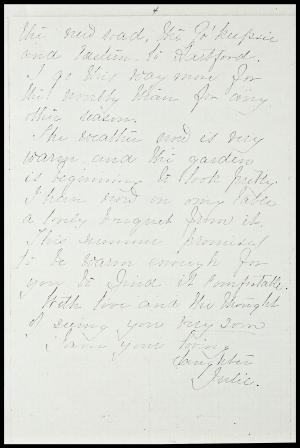 4
the new road, the Po'keepsie
and Eastern to Hartford.
I go this way more for
the novelty than for any
other reason.
The weather now is very
warm and the garden
is beginning to look pretty.
I have now on my table
a lovely bouquet from it.
This summer promises
to be warm enough for
you to find it comfortable.
With love and the thought
of seeing you very soon
I am your loving
daughter
Julie.